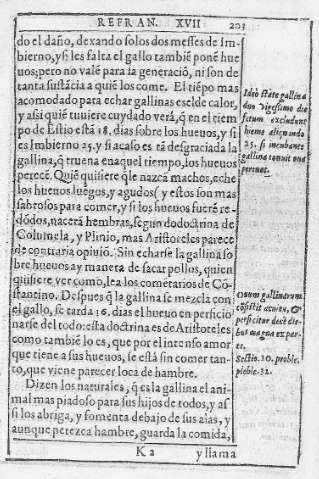 REFRAN. XVII 203
do el daño, dexando solos dos messes de Im-
bierno, y si les falta el gallo tambiē ponē hue
uos; pero no vale para la generació, ni son de
tanta sustācia a quiē los come. El tiēpo mas
acomodado para echar gallinas es el de calor,
y assi quiē tuuiere cuydado verá, q̃ en el tiem
po de Estio está 18. dias sobre los hueuos, y si
es Imbierno 25. y si acaso es tā desgraciada la
gallina, q̃ truena en aquel tiempo, los hueuos
perecē. Quiē quisiere q̃ le nazcā machos, eche
los hueuos luegos, y agudos (y estos son mas
sabrosos para comer, y si los hueuos fuerē re-
dōdos, nacerā hembras, segun do doctrina de
Columela, y Plinio, mas Aristoteles parece
de contraria opiniō. Sin echarse la gallina so
bre hueuos ay manera de sacar pollos, quien
quisiere ver como, lea los cometarios de Cō-
stantino. Despues q̃ la gallina se mezcla con
el gallo, se tarda 16. dias el hueuo en perficio
narse del todo: esta doctrina es de Aristoteles
como tambiē lo es, que por el intenso amor
que tiene a sus hueuos, se está sin comer tan-
to, que viene parecer loca de hambre.
Dizen los naturales, q̃ es la gallina el ani-
mal mas piadoso para sus hijos de todos, y as
si los abriga, y fomenta debajo de sus alas, y
aunque perezca hambre, guarda la comida,
K a y llama
Ideò state gallina
duo vigesimo die
fœtum excludunt
hieme aliquando
25. si incubante
gallina tonuit oua
pereunt.
Ouum gallinarum
cōsistit coitu, &
perficitur decē die
bus magna ex par
te.
Sectio. 10. proble.
proble. 32.